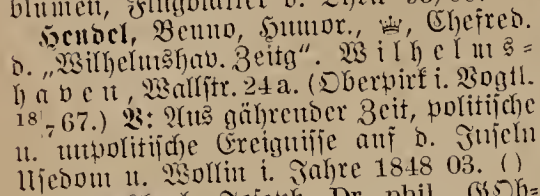 blumen, Flugblätter
Hendel, Benno, Humor., Chefred.
d. „Wilhelmshav. Zeitg“. Wilhelms=
haven, Wallstr. 24a. (Oberpirk i. Vogtl.
18/7 67.) V: Aus gährender Zeit, politische
u. unpolitische Ereignisse auf d. Inseln
Usedom u. Wollin i. Jahre 1848 03. ()
Joseph, Dr. phil.